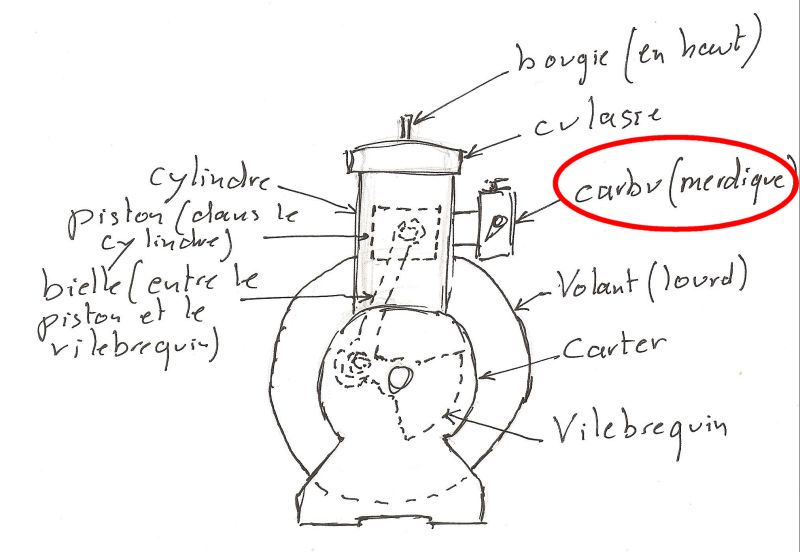 bougie (en haut)
culasse
carbu (merdique)
cylindre
piston (dans le
cylindre)
bielle (entre le
piston et le
vilebrequin)
Volant (lourd)
Carter
Vilebrequin